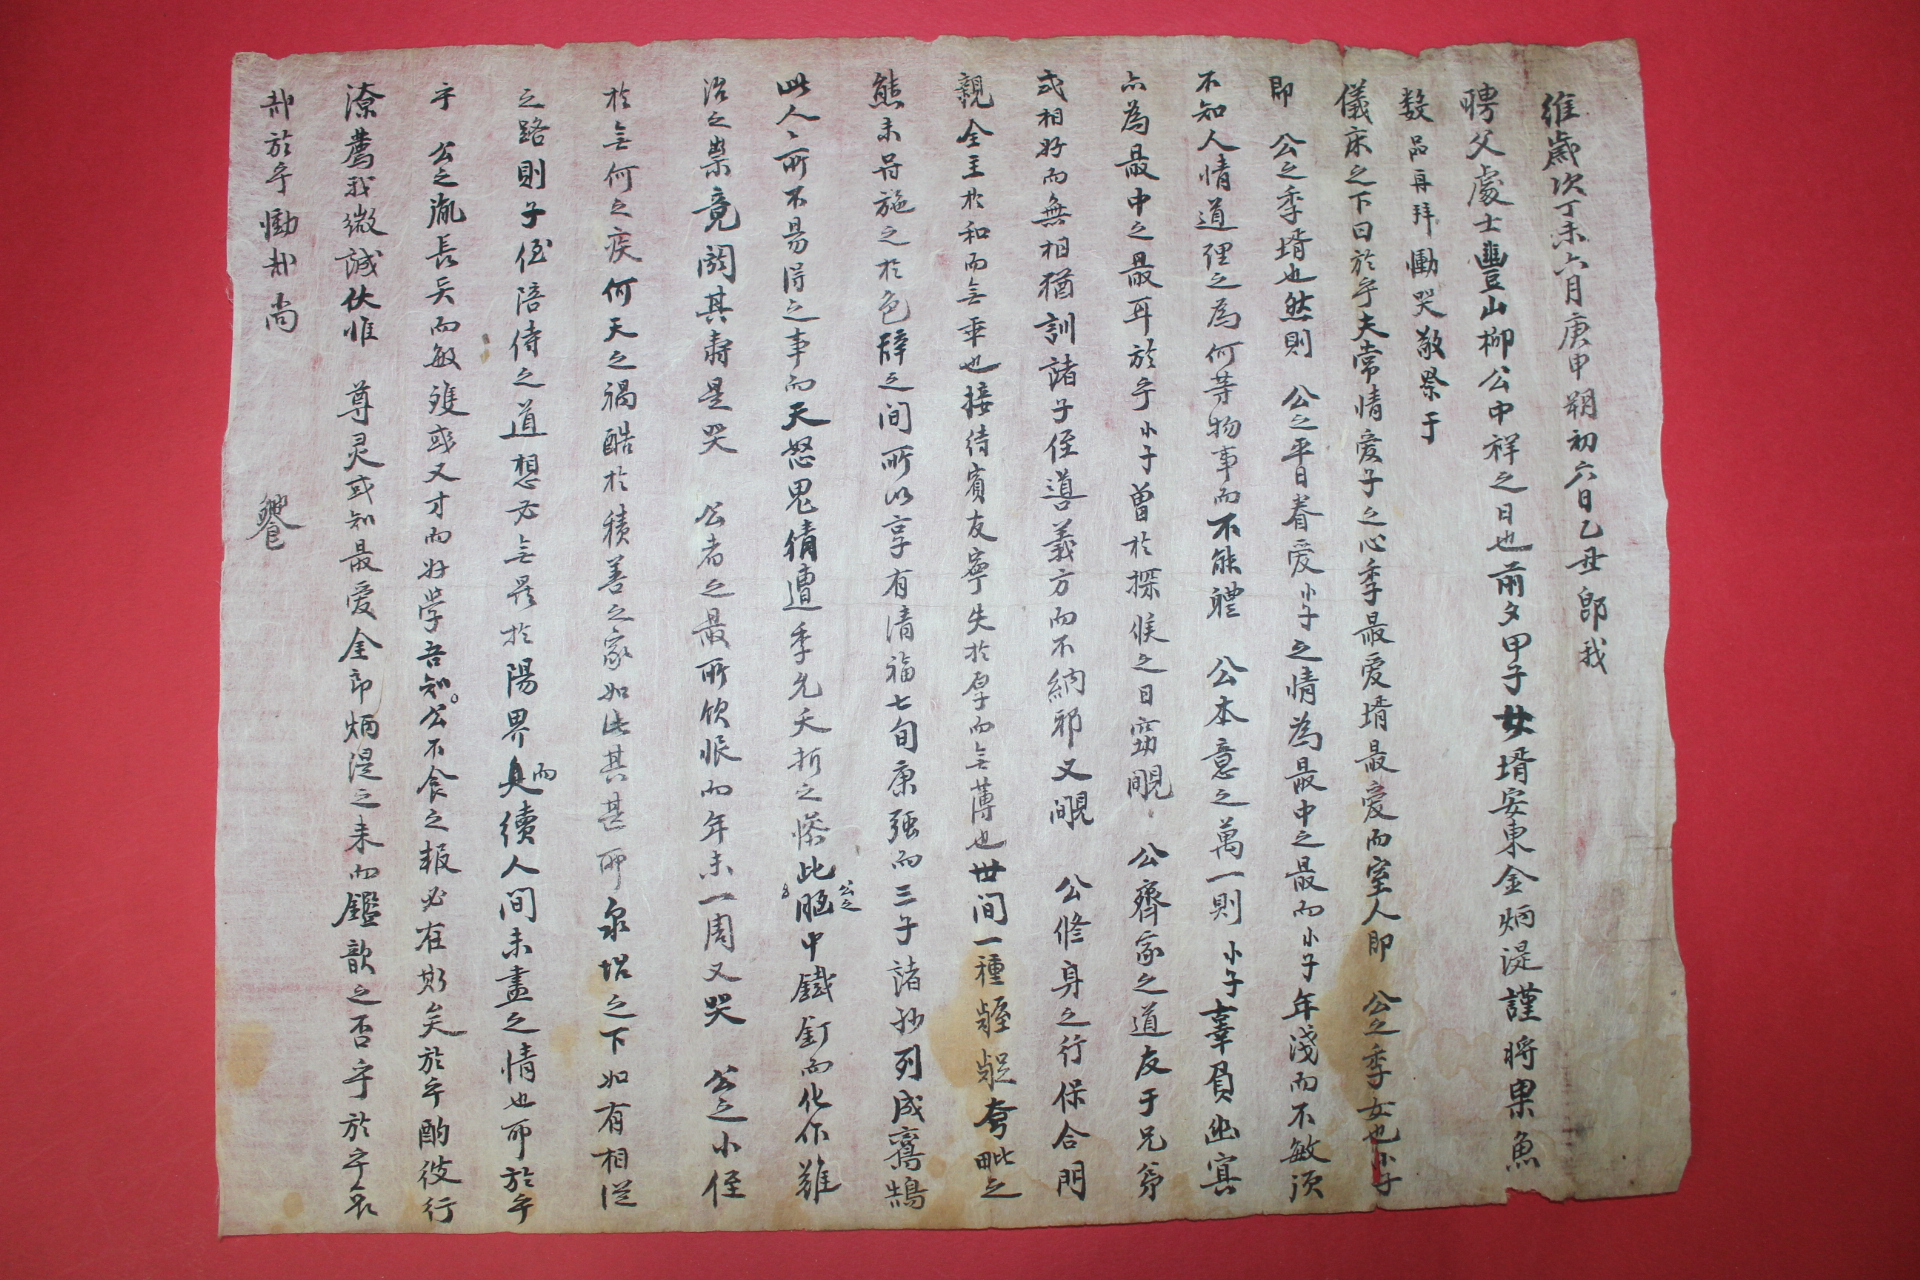 維歲次丁未六月庚申朔初六日乙丑卽我
聘父處士豊山柳公中祥之日也前夕甲子女壻安東金炳湜謹將果魚
數品再拜慟哭敬祭于
儀床之下曰於乎夫常情愛子之心季最愛壻最愛而室人卽 公之季女也小子
卽 公之季壻也然則 公之平日眷愛小子之情為最中之最而小子年淺而不敏須
不知人情道理之為何等物事而不能軆 公本意之萬一則小子辜負幽冥
亦為最中之最耳於乎小子曾於探候之日竊覸 公齊家之道友于兄弟
式相好而無相猶訓諸子侄導義方而不納邪又覸 公修身之行保合門
親全主於和而無乖也接待賓友寧失於厚而無薄也世間一種齷齪夸毗之
態未甞施之於色辭之間所以享有清福七旬康强而三子諸孫列成鸞鵠
此人人所不易得之事而天怒鬼猜遭季允夭折之慘此公之腦中鐵釘而化作難
治之祟竟閼其壽是哭 公者之最所飮恨而年未一周又哭 公之小侄
於無何之疾何天之禍酷於積善之家如此其甚耶泉坮之下如有相從
之路則子侄陪侍之道想必無異於陽界而續人間未盡之情也耶於乎
乎 公之胤長兄而敏雅或又才而好學吾知公不食之報必在斯矣於乎酌彼行
潦薦我微誠伏惟 尊灵或知最愛金郎炳湜之来而鑑歆之否乎於乎哀
哉於乎慟哉尚 饗